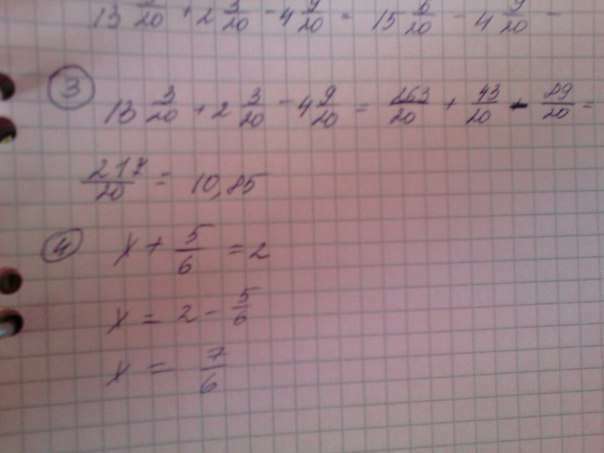 13 3/20 + 2 3/20 - 4 9/20 = 15 6/20 - 4 9/20 -
3
13 3/20 + 2 3/20 - 4 9/20 = 263/20 + 43/20 - 89/20 =
217/20 = 10,85
4
x + 5/6 = 2
x = 2 - 5/6
x = 7/6